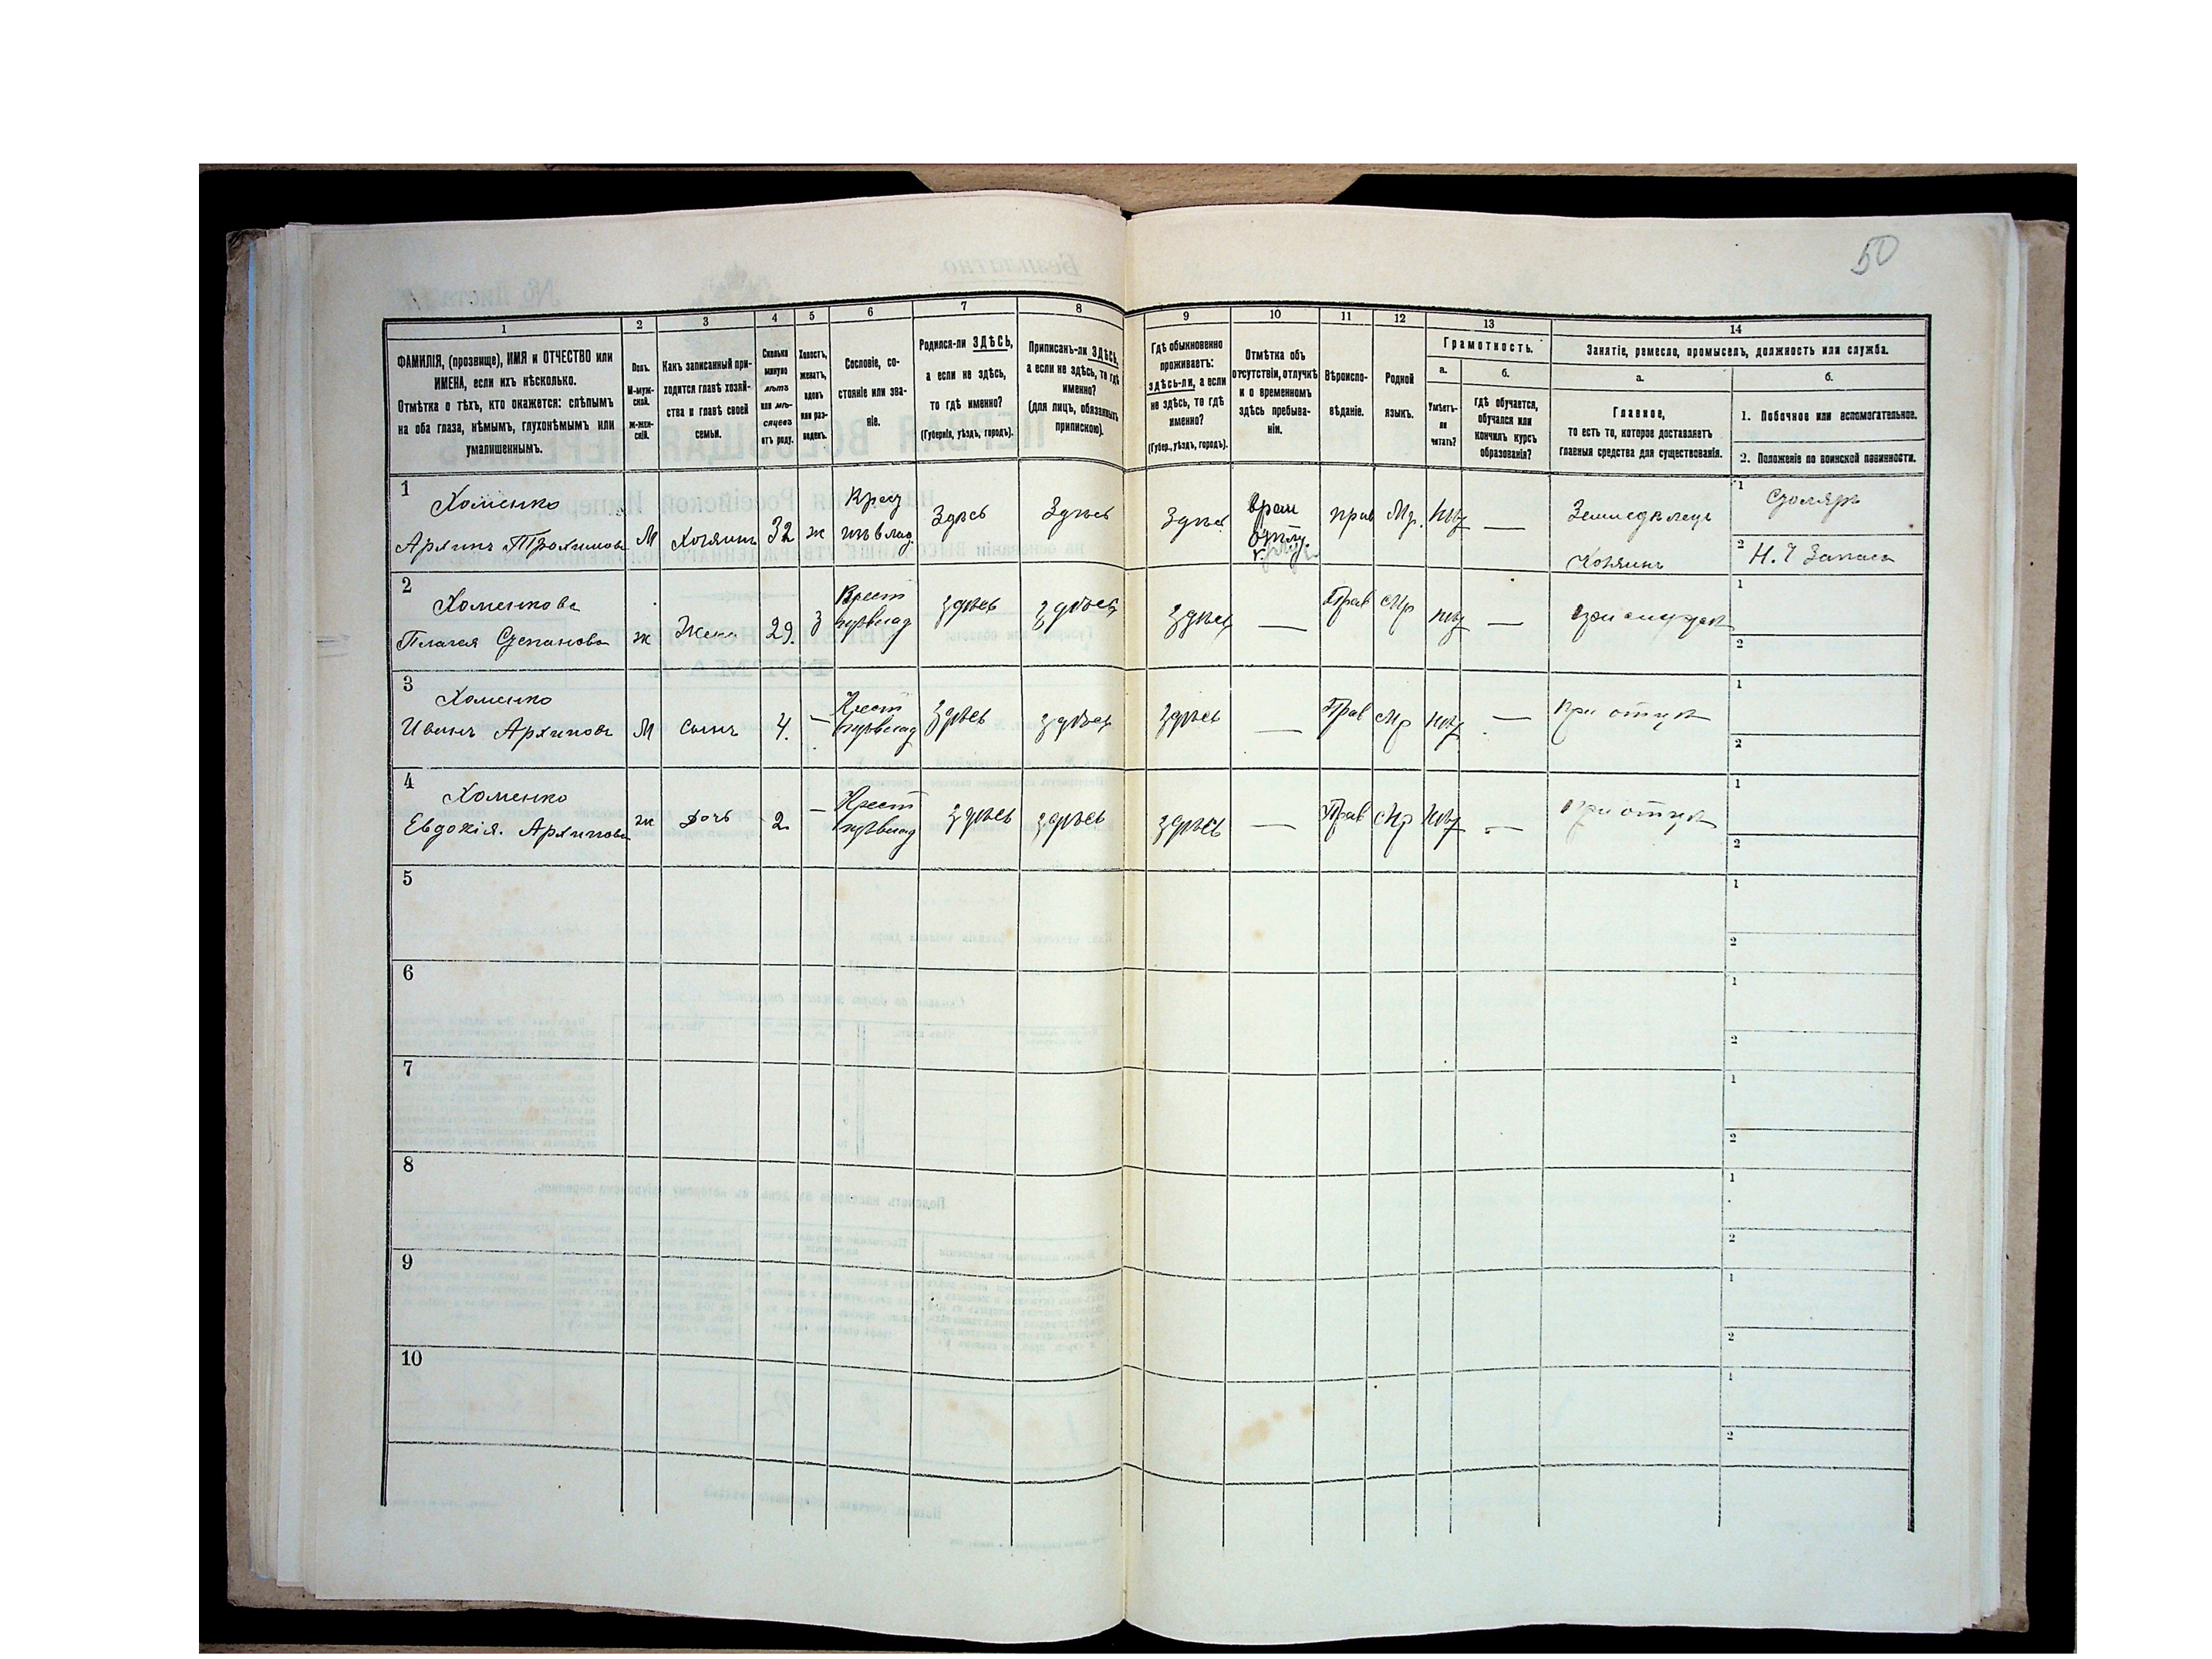 50
1
2
3
4
5
6
7
8
9
10
11
12
13
14
ФАМИЛІЯ, (прозвище), ИМЯ и ОТЧЕСТВО или
ИМЕНА, если ихъ нѣсколько.
Отмѣтка о тѣхъ, кто окажется: слѣпымъ
на оба глаза, нѣмымъ, глухонѣмымъ или
умалишеннымъ.
Полъ.
М-муж-
ской.
Ж-жен-
скій.
Какъ записанный при-
ходится главѣ хозяй-
ства и главѣ своей
семьи.
Сколько
минуло
лѣтъ
или мѣ-
сяцевъ
отъ роду.
Холостъ,
женатъ,
вдовъ
или раз-
веденъ.
Сословіе, со-
стояніе или зва-
ніе.
Родился-ли ЗДѢСЬ,
а если не здѣсь,
то гдѣ именно?
(Губернія, уѣздъ, городъ).
Приписанъ-ли ЗДѢСЬ,
а если не здѣсь, то гдѣ
именно?
(для лицъ, обязанныхъ
припискою).
Гдѣ обыкновенно
проживаетъ:
здѣсь-ли, а если
не здѣсь, то гдѣ
именно?
(Губер., уѣздъ, городъ).
Отмѣтка объ
отсутствіи, отлучкѣ
и о временномъ
здѣсь пребыва-
ніи.
Вѣроиспо-
вѣданіе.
Родной
языкъ.
Грамотность.
а.
Умѣетъ-
ли
читать?
б.
гдѣ обучается,
обучался или
кончилъ курсъ
образованія?
Занятіе, ремесло, промыселъ, должность или служба.
а.
Главное,
то есть то, которое доставляетъ
главныя средства для существованія.
б.
1. Побочное или вспомогательное.
2. Положеніе по воинской повинности.
1
Хоменко
Архипъ Трохимовъ
М
Хозяинъ
32
ж
Крест
изъ влад.
Здѣсь
Здѣсь
Здѣсь
прав
Мр.
Нѣт
—
Земледѣлецъ
Хозяинъ
1
Столяръ
2
Н. Ч Запаса
2
Хоменкова
Степанова
ж
Жена
29.
З
Крест
изъвлад
здѣсь
здѣсь
здѣсь
—
Прав
Мр
нѣт
—
1
2
3
Хоменко
Иванъ Архиповъ
М
Сынъ
4.
—
Крест
изъвлад
здѣсь
здѣсь
здѣсь
—
Прав
Мр
нѣт
—
При отцѣ
1
2
4
Хоменко
Евдокія. Архипова
ж
Дочь
2
—
Крест
изъвлад
здѣсь
здѣсь
здѣсь
—
Прав
Мр
Нѣт
—
При отцѣ
1
2
5
1
2
6
1
2
7
1
2
8
1
2
9
1
2
10
1
2